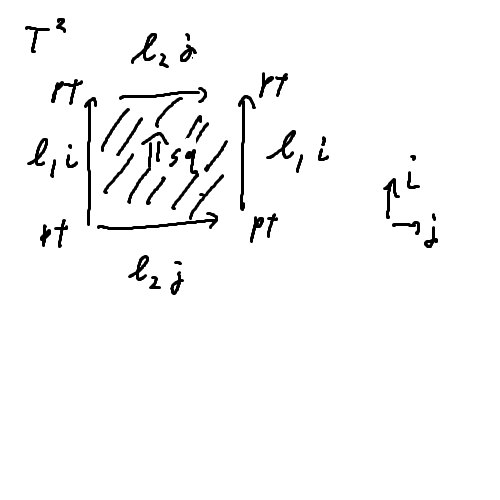 T²
l₂ j
pt pt
l₁ i sq l₁ i
i
pt pt j
l₂ j